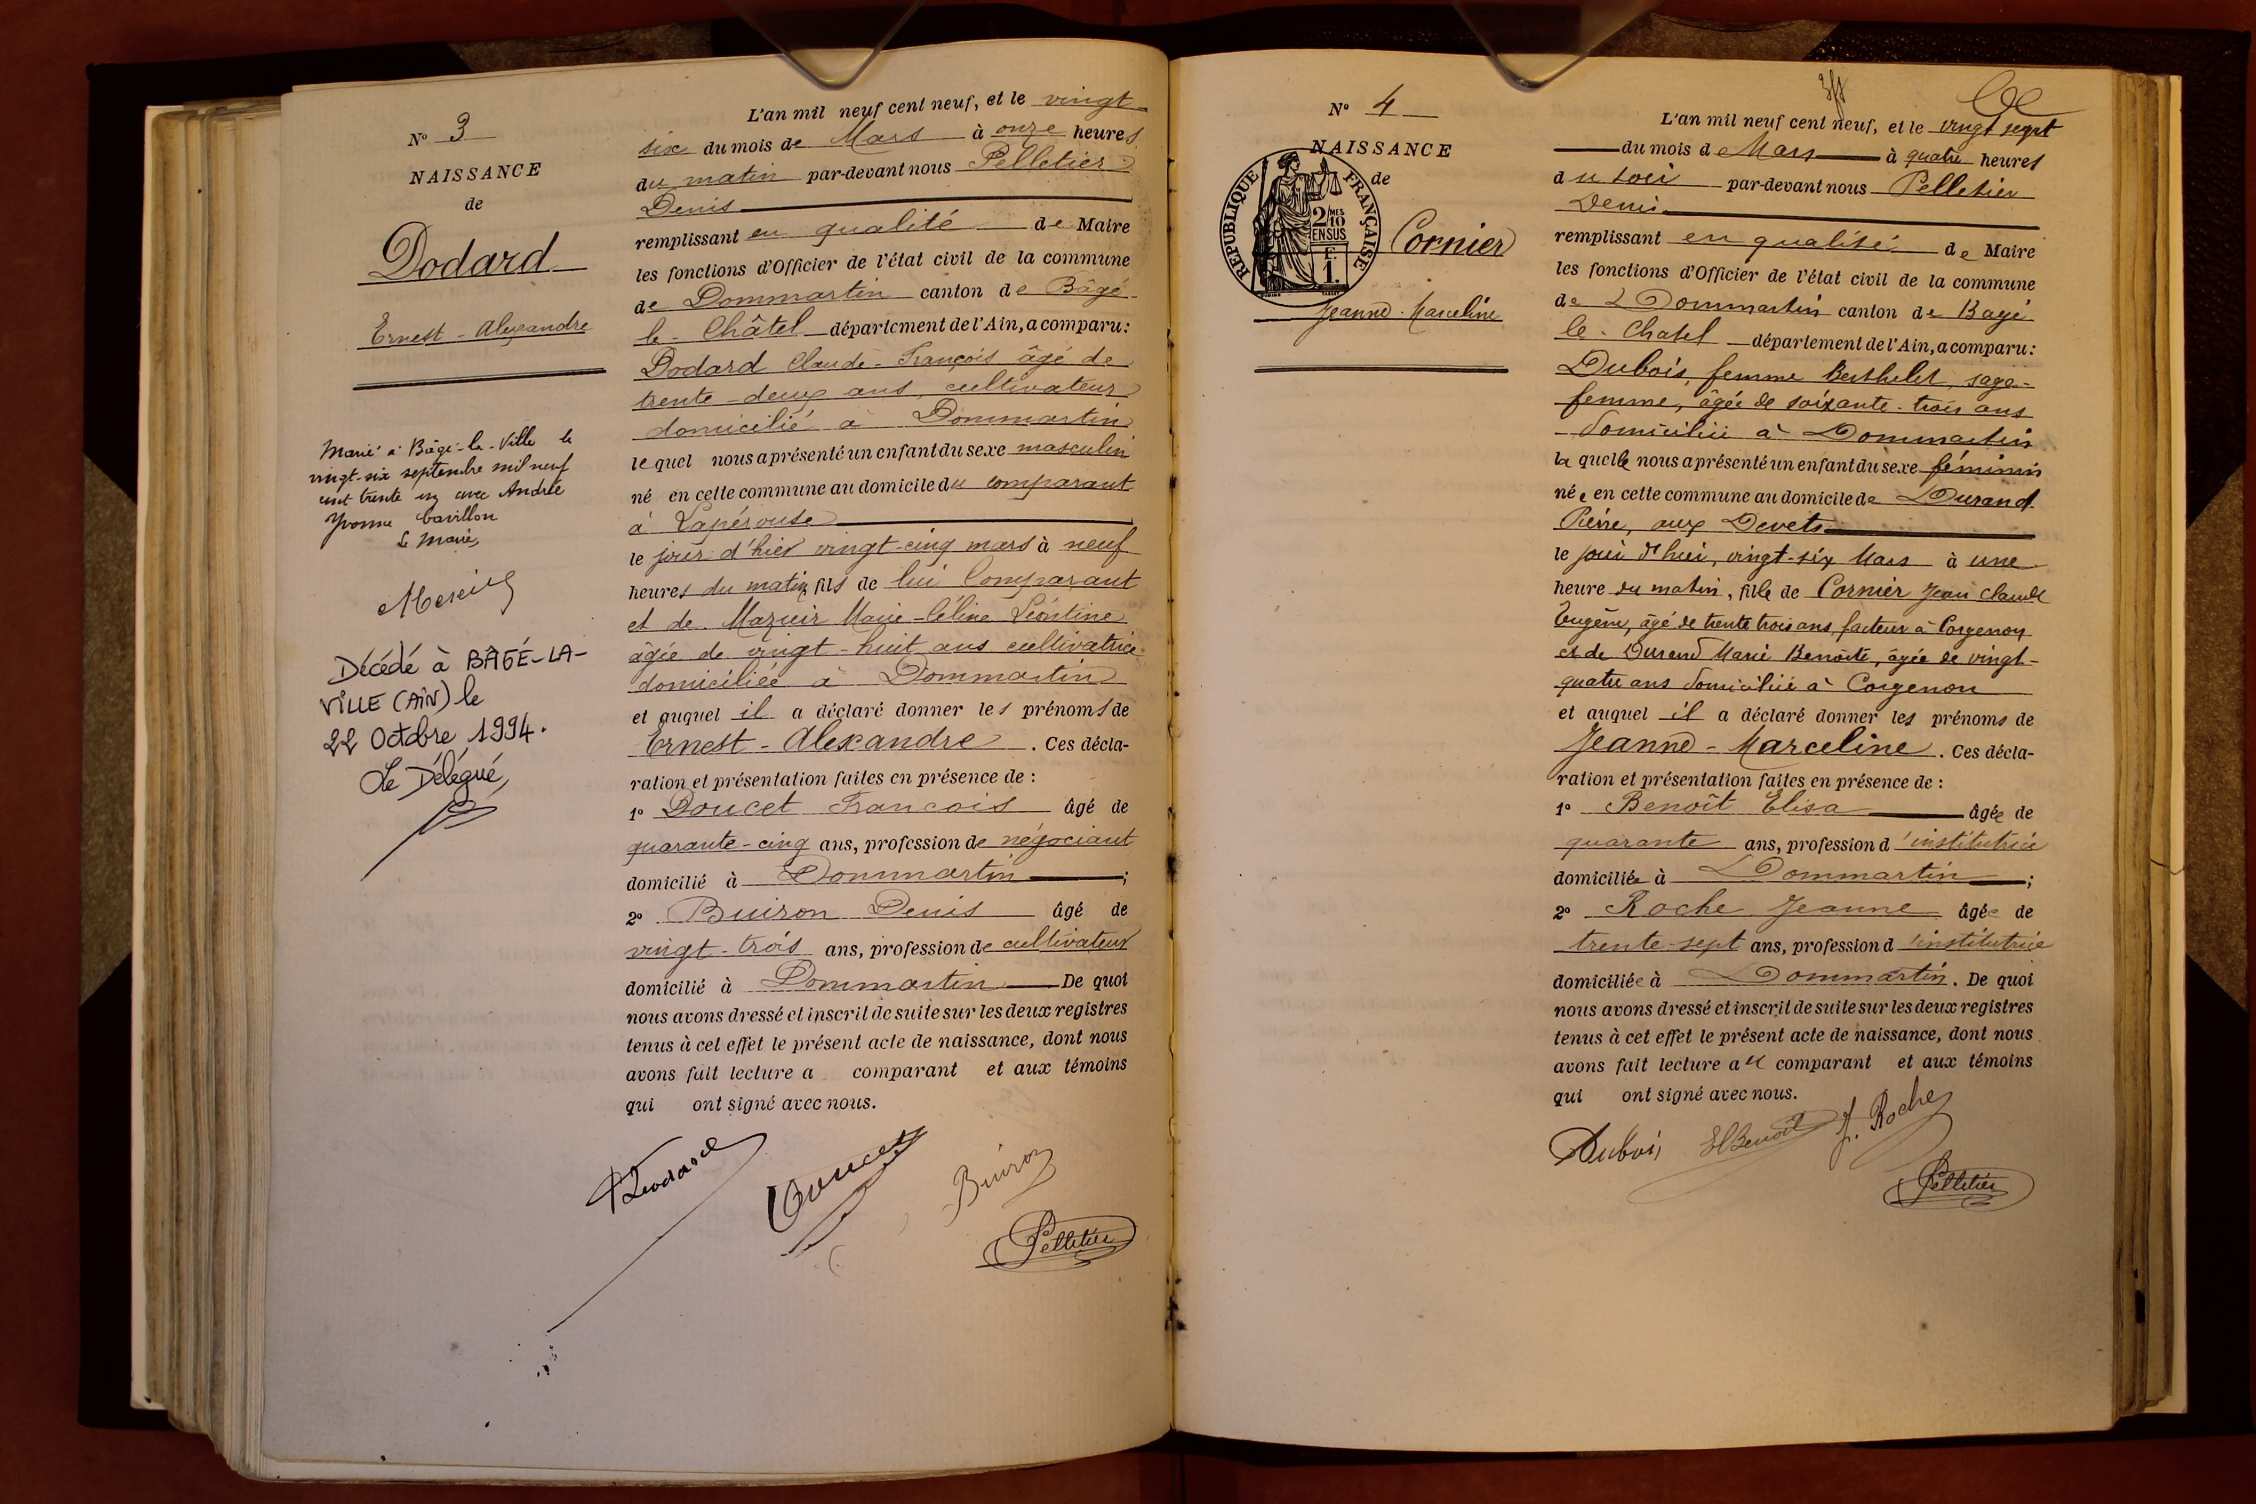 N° 3
NAISSANCE
de
Dodard
Ernest - Alexandre
Marié à Bâgé-la-Ville le
vingt-six septembre mil neuf
cent trente un avec Andrée
Yvonne Cavillon
Le Maire,
Décédé à BÂGÉ-LA-
VILLE (AIN) le
22 Octobre 1994.
Le Délégué,
L'an mil neuf cent neuf, et le vingt
six du mois de Mars à onze heures
du matin par-devant nous Pelletier
Denis
remplissant en qualité de Maire
les fonctions d'Officier de l'état civil de la commune
de Dommartin canton de Bâgé
le - Châtel département de l'Ain, a comparu :
Dodard Claude - François âgé de
trente - deux ans, cultivateur
domicilié à Dommartin
lequel nous a présenté un enfant du sexe masculin
né en cette commune au domicile du comparant
à Lapérouse
le jour d'hier vingt-cinq mars à neuf
heures du matin, fils de lui Comparant
et de Mazuir Marie - Céline Léontine
âgée de vingt - huit ans cultivatrice
domiciliée à Dommartin
et auquel il a déclaré donner les prénoms de
Ernest - Alexandre . Ces décla-
ration et présentation faites en présence de :
1° Doucet Francois âgé de
quarante - cinq ans, profession de négociant
domicilié à Dommartin ;
2° Buiron Denis âgé de
vingt - trois ans, profession de cultivateur
domicilié à Dommartin De quoi
nous avons dressé et inscrit de suite sur les deux registres
tenus à cet effet le présent acte de naissance, dont nous
avons fait lecture a comparant et aux témoins
qui ont signé avec nous.
Dodard Doucet Buiron
Pelletier
N° 4
NAISSANCE
de
RÉPUBLIQUE FRANÇAISE
2/10 MES
EN SUS
1 f.
Cornier
Jeanne - Marceline
L'an mil neuf cent neuf, et le vingt sept
du mois de Mars à quatre heures
du soir par-devant nous Pelletier
Denis
remplissant en qualité de Maire
les fonctions d'Officier de l'état civil de la commune
de Dommartin canton de Bagé
le - Chatel département de l'Ain, a comparu :
Dubois, femme Berthelet, sage-
femme, âgée de soixante - trois ans
domiciliée à Dommartin
laquelle nous a présenté un enfant du sexe féminin
née en cette commune au domicile de Durand
Pierre, aux Devets
le jour d'hui, vingt-six Mars à une
heure du matin, fille de Cornier Jean Claude
Eugène, âgé de trente trois ans, facteur à Corgenon
et de Durand Marie Benoîte, âgée de vingt-
quatre ans domiciliée à Corgenon
et auquel il a déclaré donner les prénoms de
Jeanne - Marceline . Ces décla-
ration et présentation faites en présence de :
1° Benoît Elisa âgée de
quarante ans, profession d'institutrice
domiciliée à Dommartin ;
2° Roche Jeanne âgée de
trente-sept ans, profession d'institutrice
domiciliée à Dommartin. De quoi
nous avons dressé et inscrit de suite sur les deux registres
tenus à cet effet le présent acte de naissance, dont nous
avons fait lecture au comparant et aux témoins
qui ont signé avec nous.
Dubois El Benoît J. Roche
Pelletier